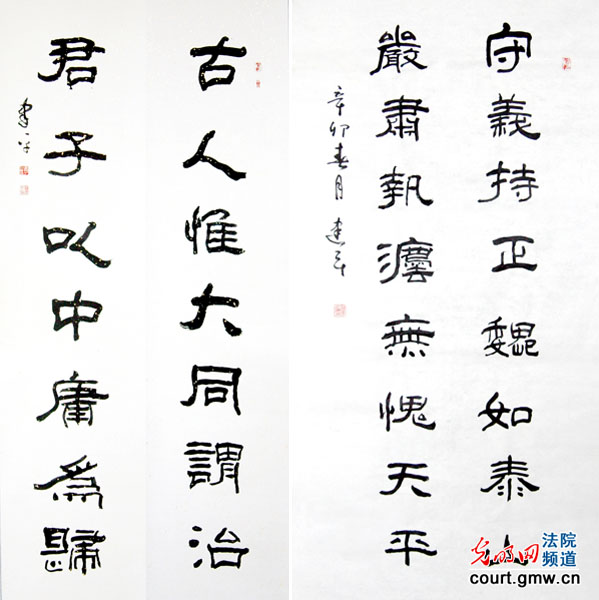 守義持正魏如泰山
嚴肅執灋無愧天平
辛卯春月
古人惟大同謂治
君子以中庸爲歸
光明网
法院
频道
court.gmw.cn